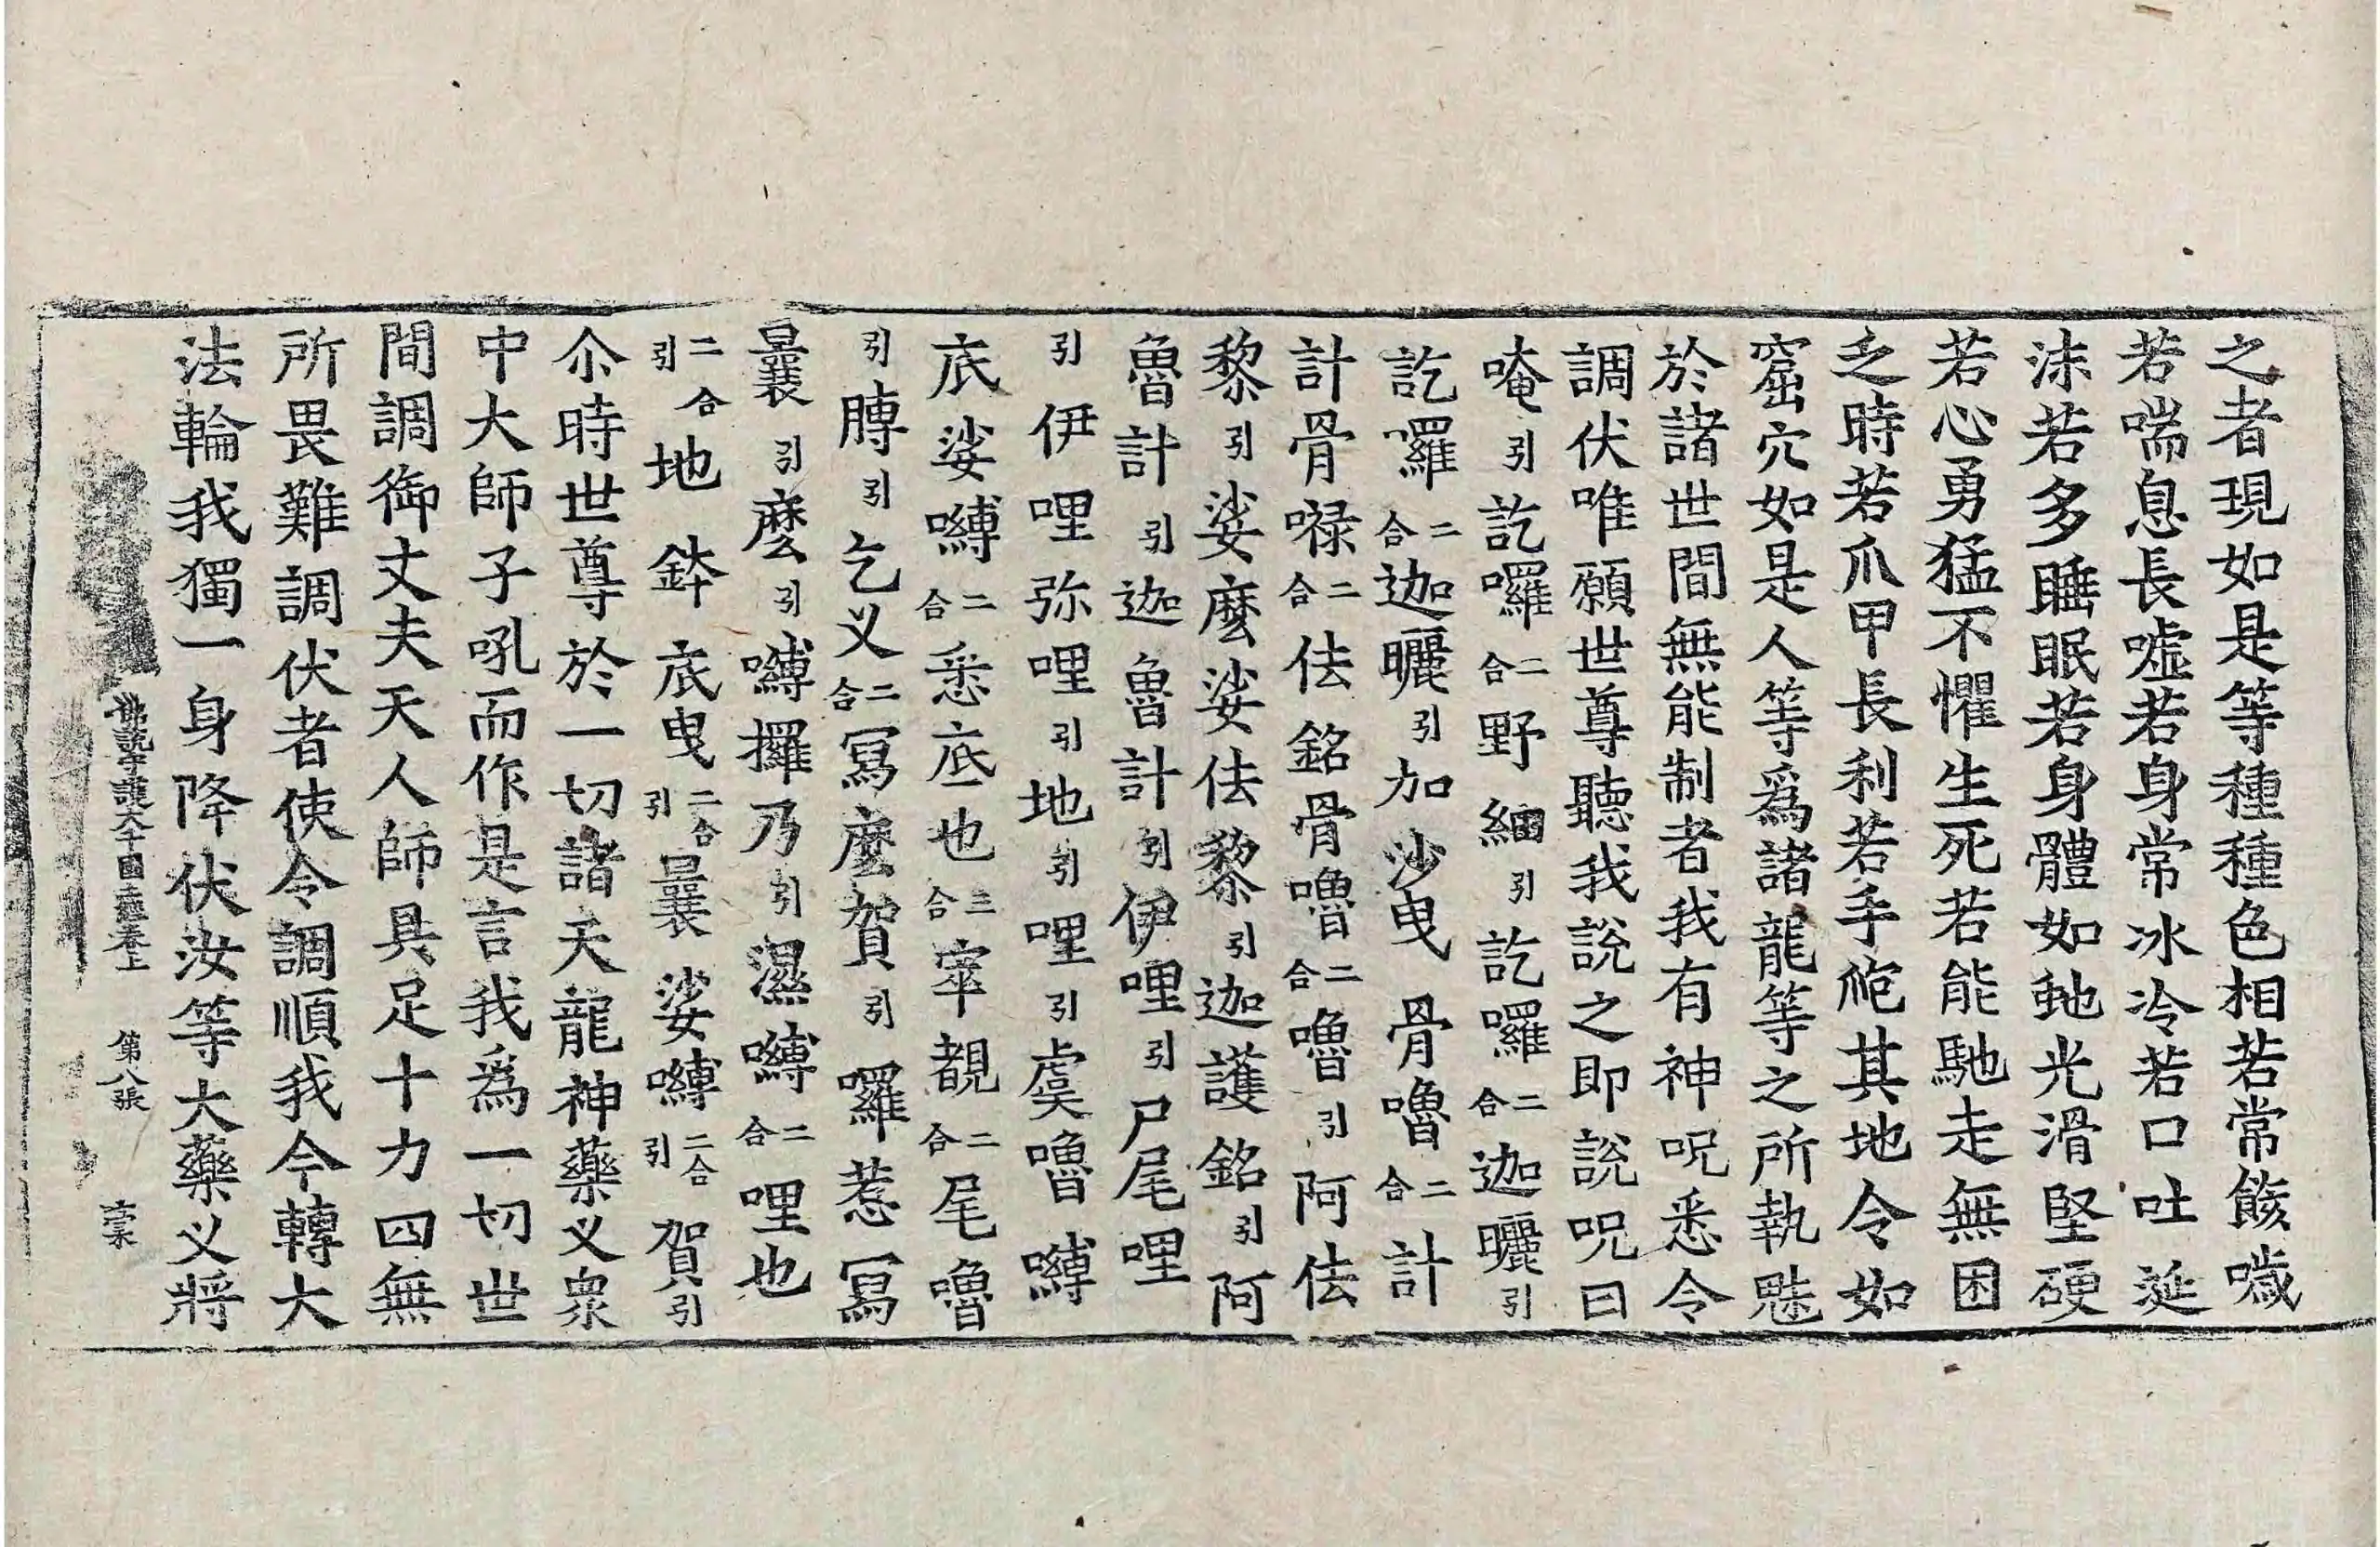 之者現如是等種種色相若常餧噦
若喘息長嘘若身常冰冷若口吐涎
沫若多睡眠若身體如虵光滑堅硬
若心勇猛不懼生死若能馳走無困
乏時若爪甲長利若手爮其地令如
窟穴如是人等爲諸龍等之所執魅
於諸世間無能制者我有神呪悉令
調伏唯願世尊聽我說之即說呪曰
唵引訖囉二合野細引訖囉二合迦曬引
訖囉二合迦曬引加沙曳骨嚕二合計
計骨祿二合佉銘骨嚕二合嚕引阿佉
黎引娑麼娑佉黎引迦護銘引阿
魯計引迦魯計引伊哩引尸尾哩
引伊哩弥哩引地引哩引虞嚕嚩
底娑嚩二合悉底也三合窣覩二合尾嚕
引膊引乞叉二合寫麼賀引囉惹寫
曩引麼引嚩攞乃引濕嚩二合哩也
二合引地鉢底曳二合引曩娑嚩二合引賀引
尒時世尊於一切諸天龍神藥叉衆
中大師子吼而作是言我爲一切世
間調御丈夫天人師具足十力四無
所畏難調伏者使令調順我今轉大
法輪我獨一身降伏汝等大藥叉將
佛說守護大千國土經卷上 第八張